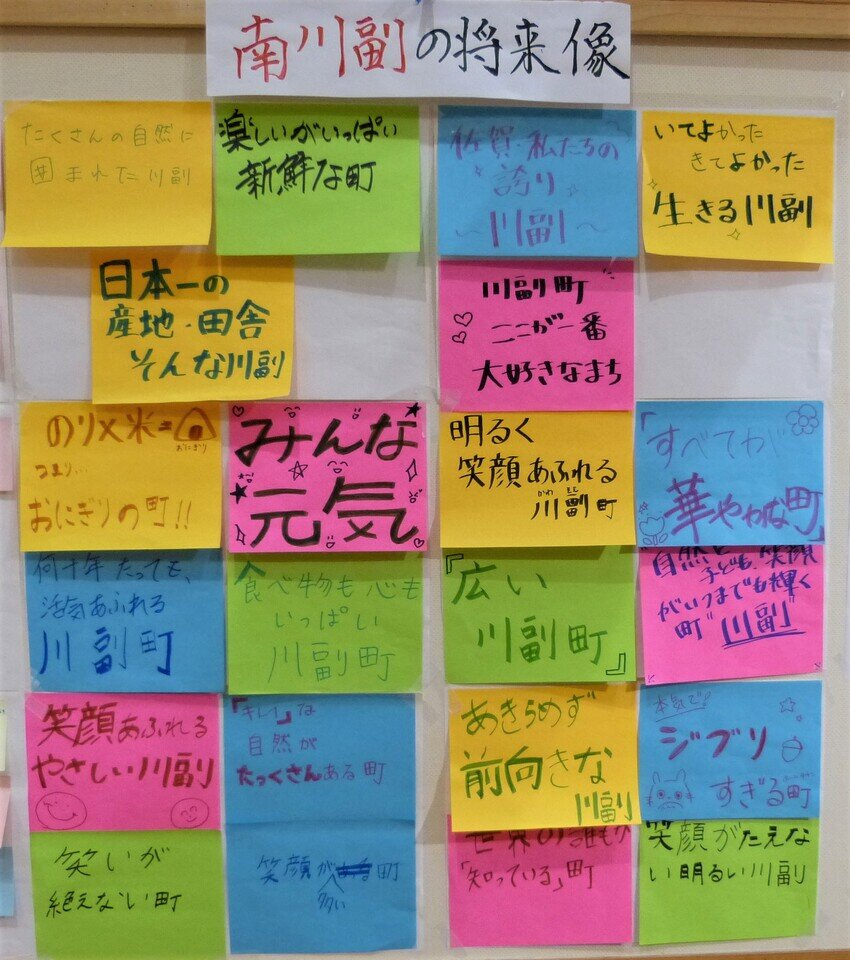 南川副の将来像
たくさんの自然に
囲まれた川副
楽しいがいっぱい
新鮮な町
佐賀・私たちの
誇り
～川副～
いてよかった
きてよかった
生きる川副
日本一の
産地・田舎
そんな川副
川副町
ここが一番
大好きなまち
のり×米=
おにぎり
つまり…
おにぎりの町!!
みんな
元気
明るく
笑顔あふれる
かわ そえ
川副町
「すべてが
華やかな町」
何十年たっても、
活気あふれる
川副町
食べ物も心も
いっぱい
川副町
『広い
川副町』
自然と
子ども、笑顔
がいつまでも輝く
町"川副"
笑顔あふれる
やさしい川副
「キレイ」な
自然が
たっくさんある町
あきらめず
前向きな
川副
本気で!
ジブリ
すぎる町
笑いが
絶えない町
笑顔が多い町
世界の誰もが
「知っている」町
笑顔がたえな
い明るい川副